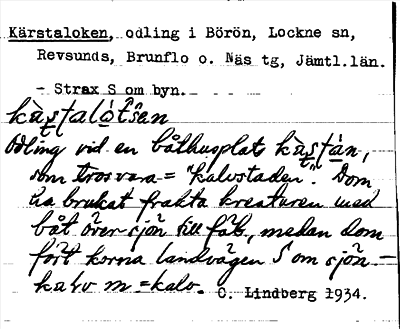 Kärstaloken, odling i Börön, Lockne sn,
Revsunds, Brunflo o. Näs tg, Jämtl.län.
- Strax S om byn.
Odling vid en båthusplats
som tros vara = "kalvstaden". Dom
ha brukat frakta kreaturen med
båt över sjön till fäb., medan dom
fört korna landvägen S om sjön -
kalv m = kalv. C. Lindberg 1934.